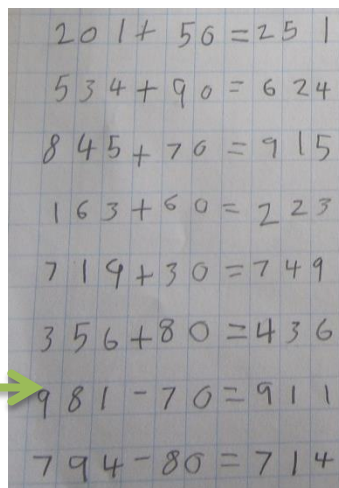 201 + 50 = 251
534 + 90 = 624
845 + 70 = 915
163 + 60 = 223
719 + 30 = 749
356 + 80 = 436
981 - 70 = 911
794 - 80 = 714